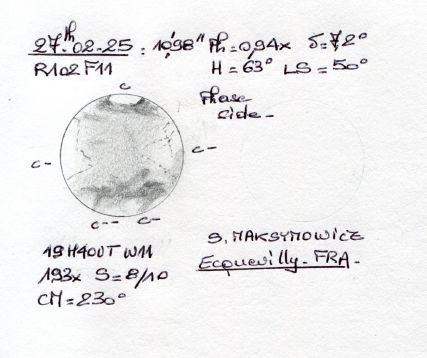 27th.02.25 : 10,98" Ph=0,94x δ=72°
R102F11 H=63° LS=50°
Phase
side-
c
c-
c-
c-- c-
19H40UT W11
193x S=8/10
CM=230°
S. MAKSYMOWICZ
Ecquevilly-FRA-